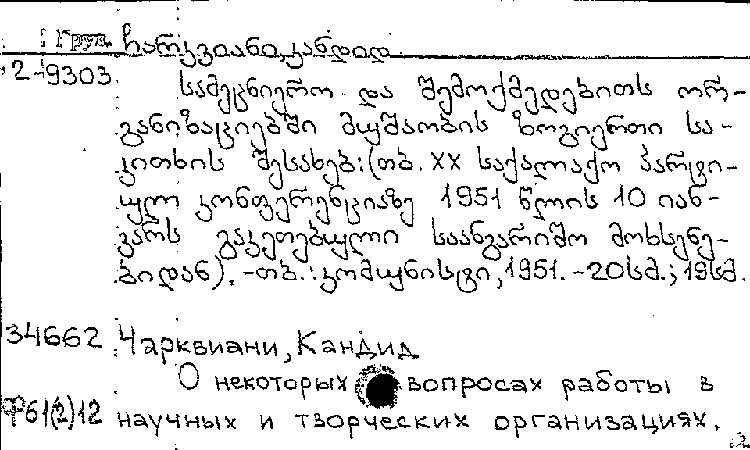 Груз. ჩარკვიანი, კანდიდ
2-9303 სამეცნიერო და შემოქმედებითს ორ-
განიზაციებში მუშაობის ზოგიერთი სა-
კითხის შესახებ: (თბ. XX საქალაქო პარტი-
ულ კონფერენციაზე 1951 წლის 10 იან-
ვარს გაკეთებული საანგარიშო მოხსენე-
ბიდან). -თბ.: კომუნისტი, 1951. -20სმ.; 19სმ.
34662 Чарквиани, Кандид
О некоторых вопросах работы в
Ф61(2)12 научных и творческих организациях.